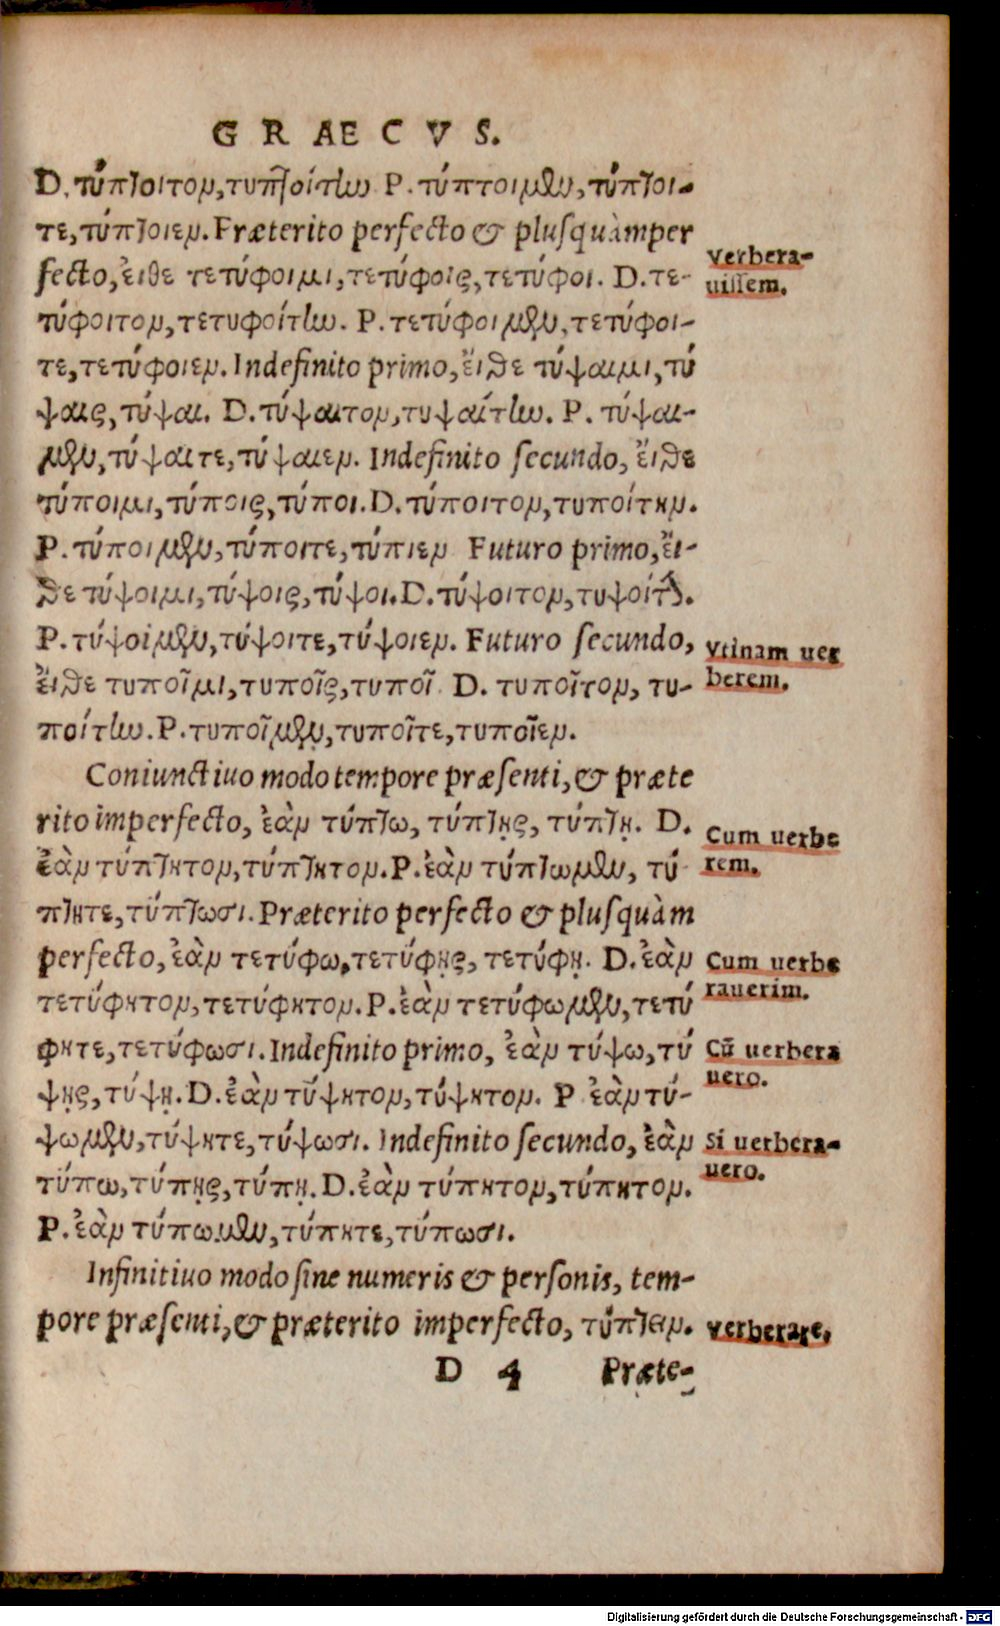 GRAECVS.
D. τύπτοιτον, τυπτοίτην P. τύπτοιμεν, τύπτοι-
τε, τύπτοιεν. Præterito perfecto & plusquàmper
fecto, ἔιθε τετύφοιμι, τετύφοις, τετύφοι. D. τε-
τύφοιτον, τετυφοίτην. P. τετύφοιμεν, τετύφοι-
τε, τετύφοιεν. Indefinito primo, ἔιθε τύψαιμι, τύ
ψαις, τύψαι. D. τύψαιτον, τυψαίτην. P. τύψαι-
μεν, τύψαιτε, τύψαιεν. Indefinito secundo, ἔιθε
τύποιμι, τύποις, τύποι. D. τύποιτον, τυποίτην.
P. τύποιμεν, τύποιτε, τύπιεν Futuro primo, ἔι-
θε τύψοιμι, τύψοις, τύψοι. D. τύψοιτον, τυψοίτην.
P. τύψοιμεν, τύψοιτε, τύψοιεν. Futuro secundo,
ἔιθε τυποῖμι, τυποῖς, τυποῖ D. τυποῖτον, τυ-
ποίτην. P. τυποῖμεν, τυποῖτε, τυποῖεν.
Coniunctiuo modo tempore præsenti, & præte
rito imperfecto, ἐὰν τύπτω, τύπτῃς, τύπτῃ. D.
ἐὰν τύπτητον, τύπτητον. P. ἐὰν τύπτωμεν, τύ
πτητε, τύπτωσι. Præterito perfecto & plusquàm
perfecto, ἐὰν τετύφω, τετύφῃς, τετύφῃ. D. ἐὰν
τετύφητον, τετύφητον. P. ἐὰν τετύφωμεν, τετύ
φητε, τετύφωσι. Indefinito primo, ἐὰν τύψω, τύ
ψῃς, τύψῃ. D. ἐὰν τύψητον, τύψητον. P ἐὰν τύ-
ψωμεν, τύψητε, τύψωσι. Indefinito secundo, ἐὰν
τύπω, τύπῃς, τύπῃ. D. ἐὰν τύπητον, τύπητον.
P. ἐὰν τύπωμεν, τύπητε, τύπωσι.
Infinitiuo modo sine numeris & personis, tem-
pore præsenti, & præterito imperfecto, τύπτειν.
D 4 Præte-
Verbera-
uissem.
Vtinam uer
berem.
Cum uerbe
rem.
Cum uerbe
rauerim.
Cū uerbera
uero.
Si uerbera-
uero.
Verberare,
Digitalisierung gefördert durch die Deutsche Forschungsgemeinschaft - DFG